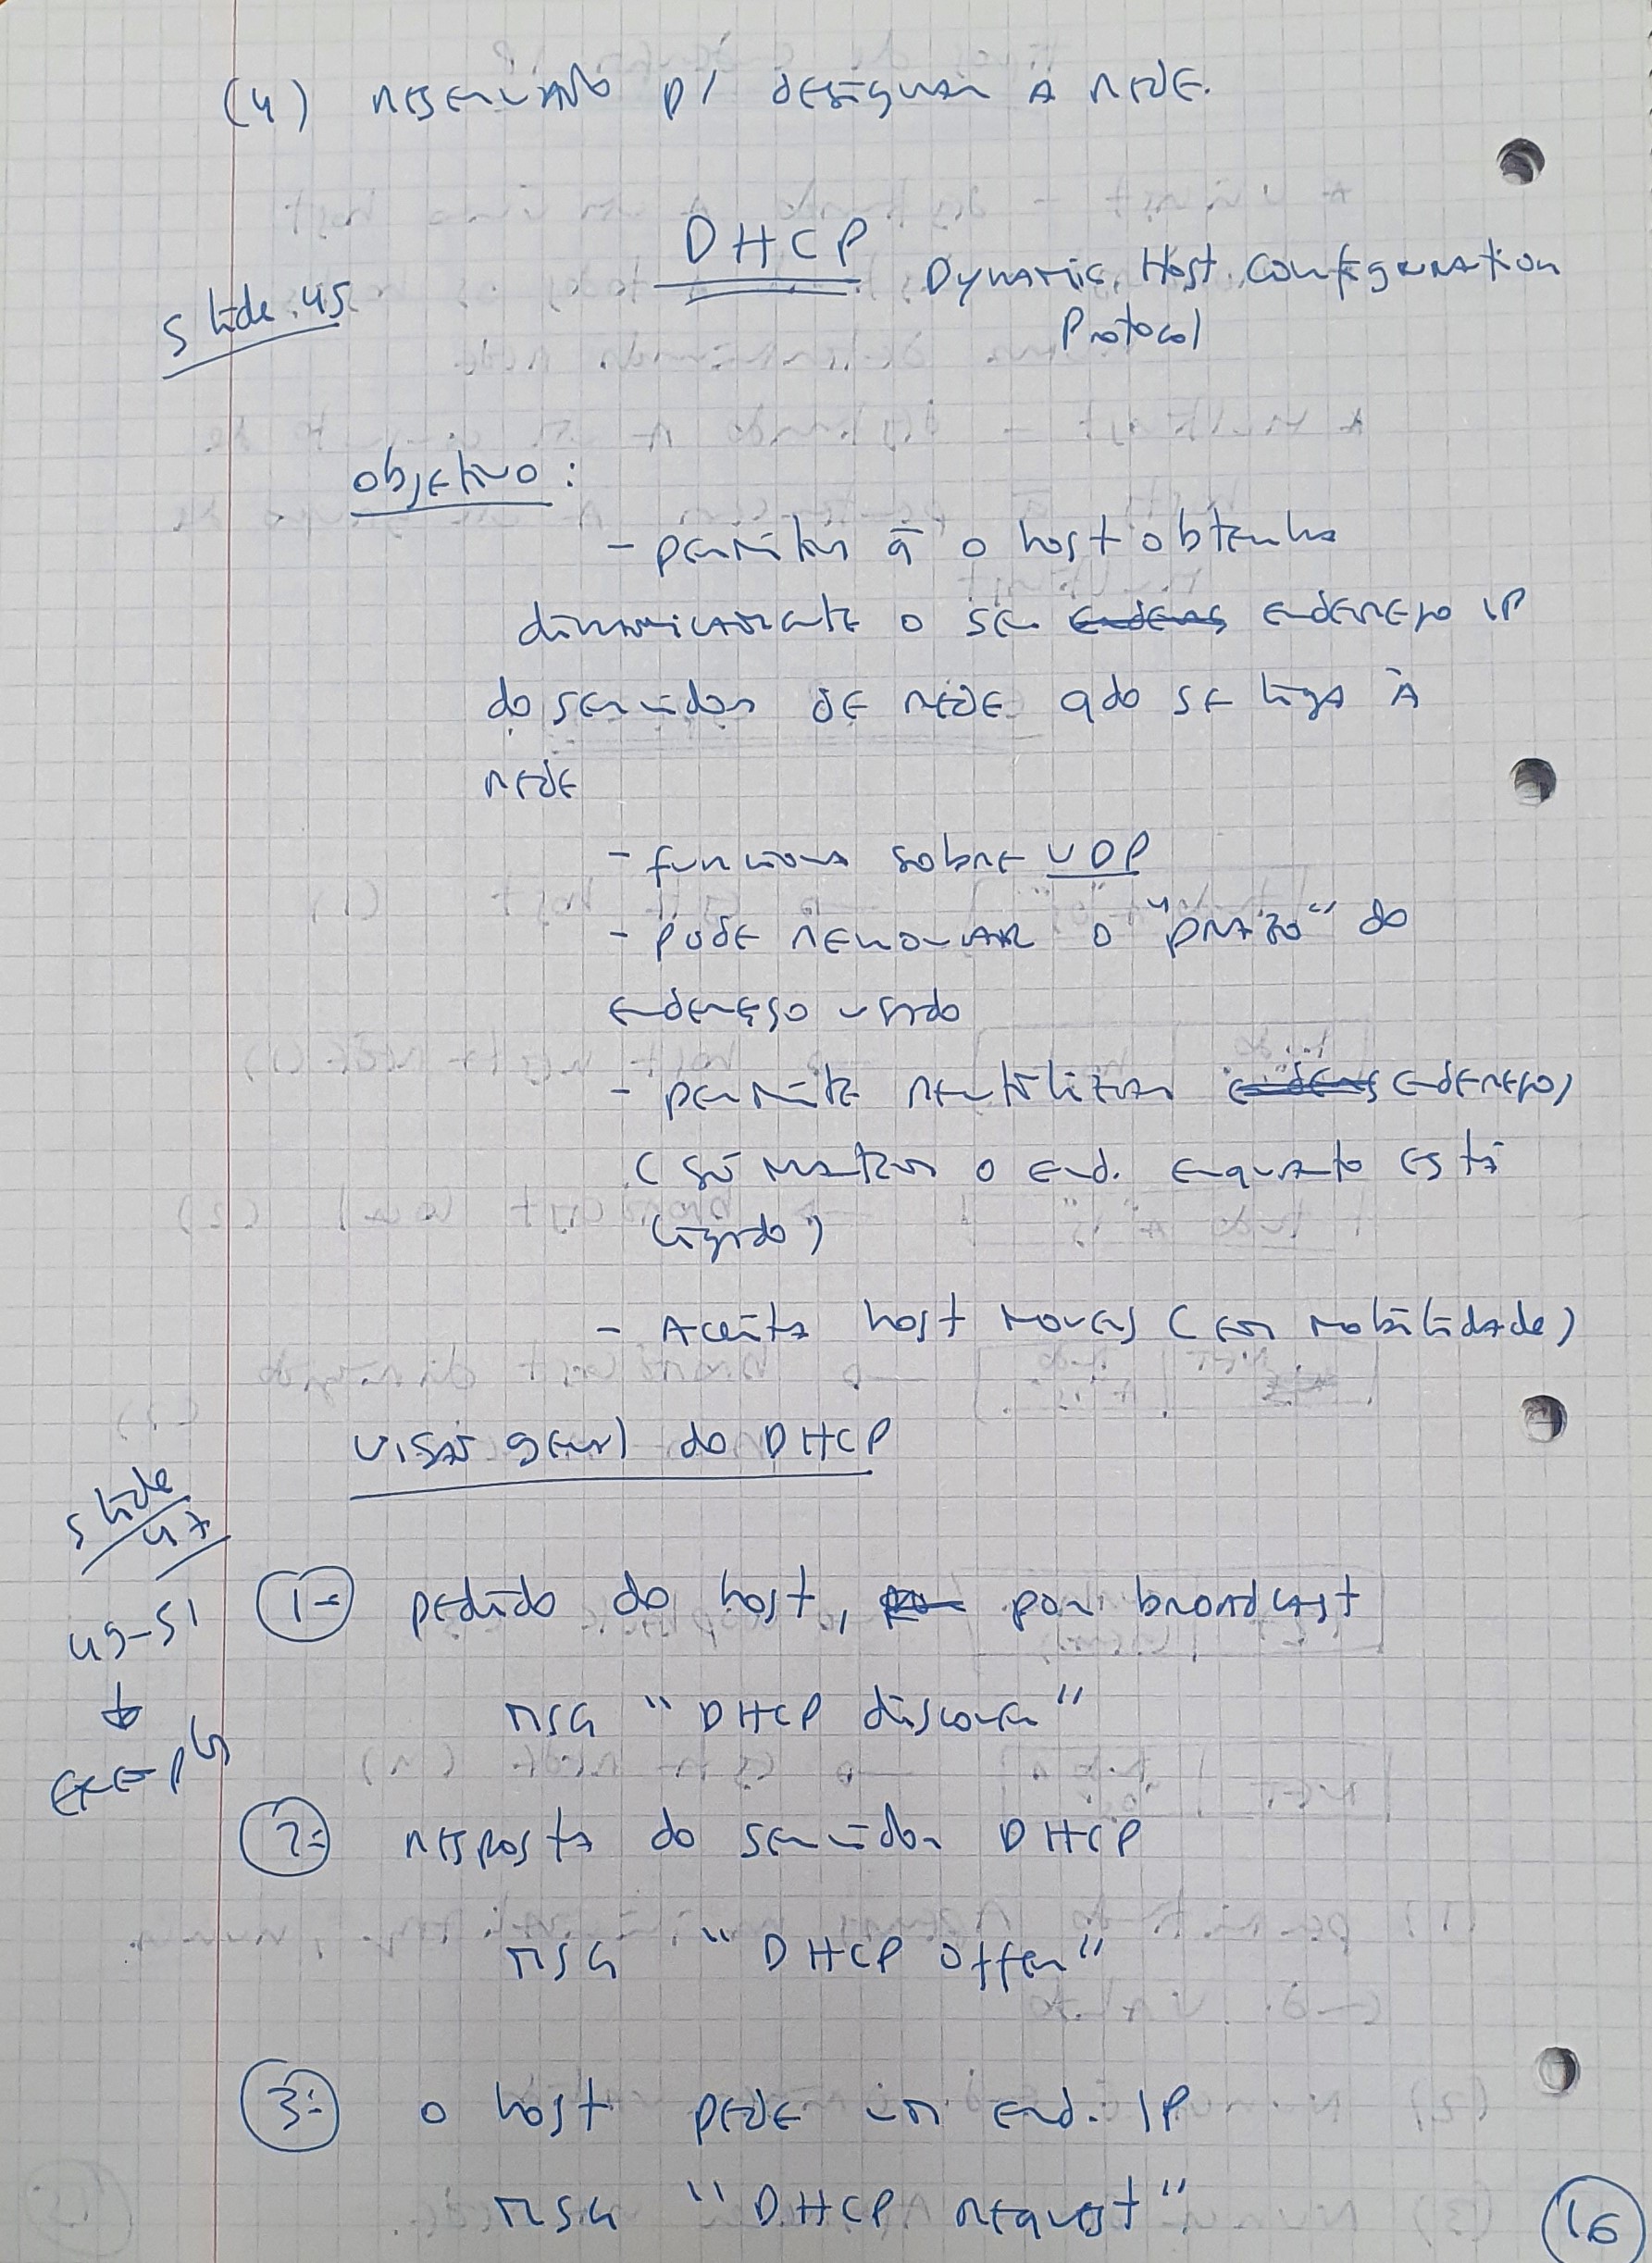 (4) reservado p/ designar a rede.
DHCP
Dynamic Host Configuration
Protocol
slide 45
objetivo:
- permitir q̃ o host obtenha
dinamicamente o seu endereço IP
do servidor de rede qdo se liga à
rede
- funciona sobre UDP
- pode renovar o "prazo" do
endereço usado
- permite reutilizar endereços
(só mantém o end. enquanto está
ligado)
- Aceita host móveis (em mobilidade)
visão geral do DHCP
slide
47
49-51
↓
exemplo
1- pedido do host, por broadcast
MSG "DHCP discover"
2- resposta do servidor DHCP
MSG "DHCP offer"
3- o host pede um end. IP
MSG "DHCP request"
16